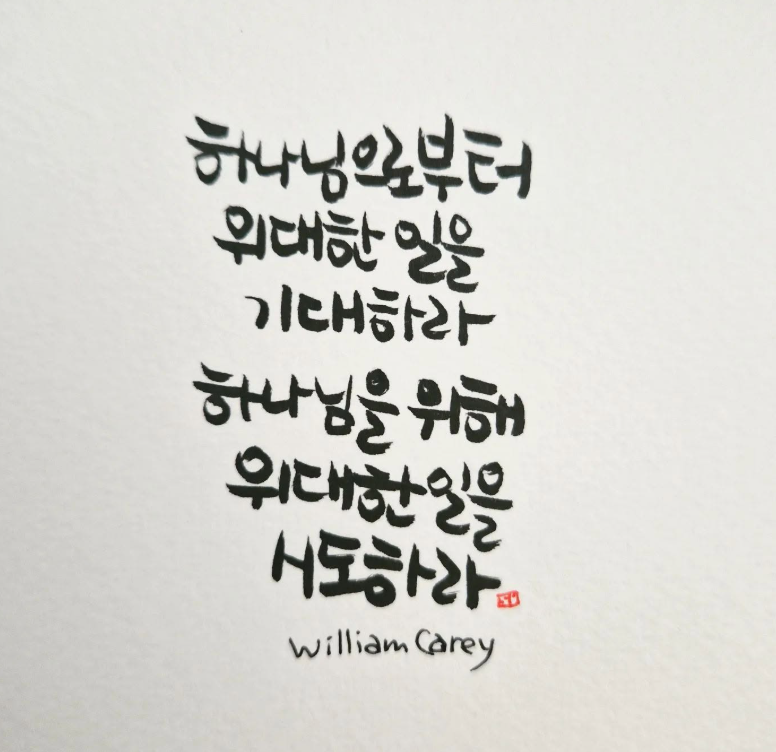 하나님으로부터
위대한 일을
기대하라
하나님을 위해
위대한 일을
시도하라
William Carey